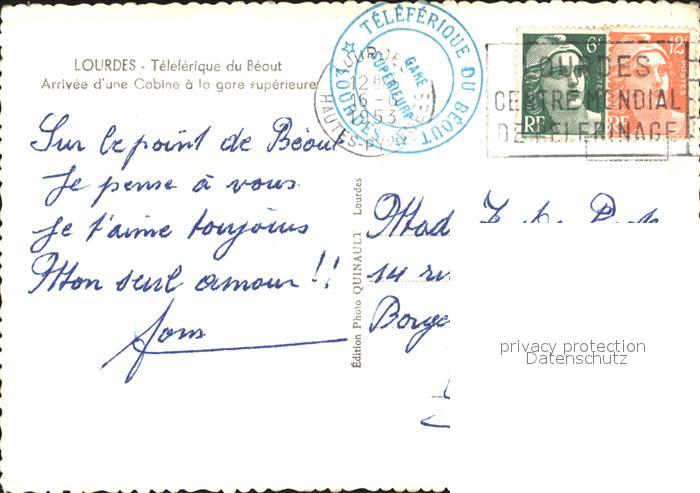 LOURDES - Téléférique du Béout
Arrivée d'une Cabine à la gare supérieure
TÉLÉFÉRIQUE DU BÉOUT
LOURDES
GARE
SUPÉRIEURE
LOURDES
12
16
1953
HAUTES-PYRÉNÉES
6F
POSTES
RF
12F
POSTES
RF
LOURDES
CENTRE MONDIAL
DE PELERINAGE
Sur le point de Béout
Je pense à vous
Je t'aime toujours
Mon seul amour !!
Édition Photo QUINAULT Lourdes
Mad
14 ru
privacy protection
Datenschutz